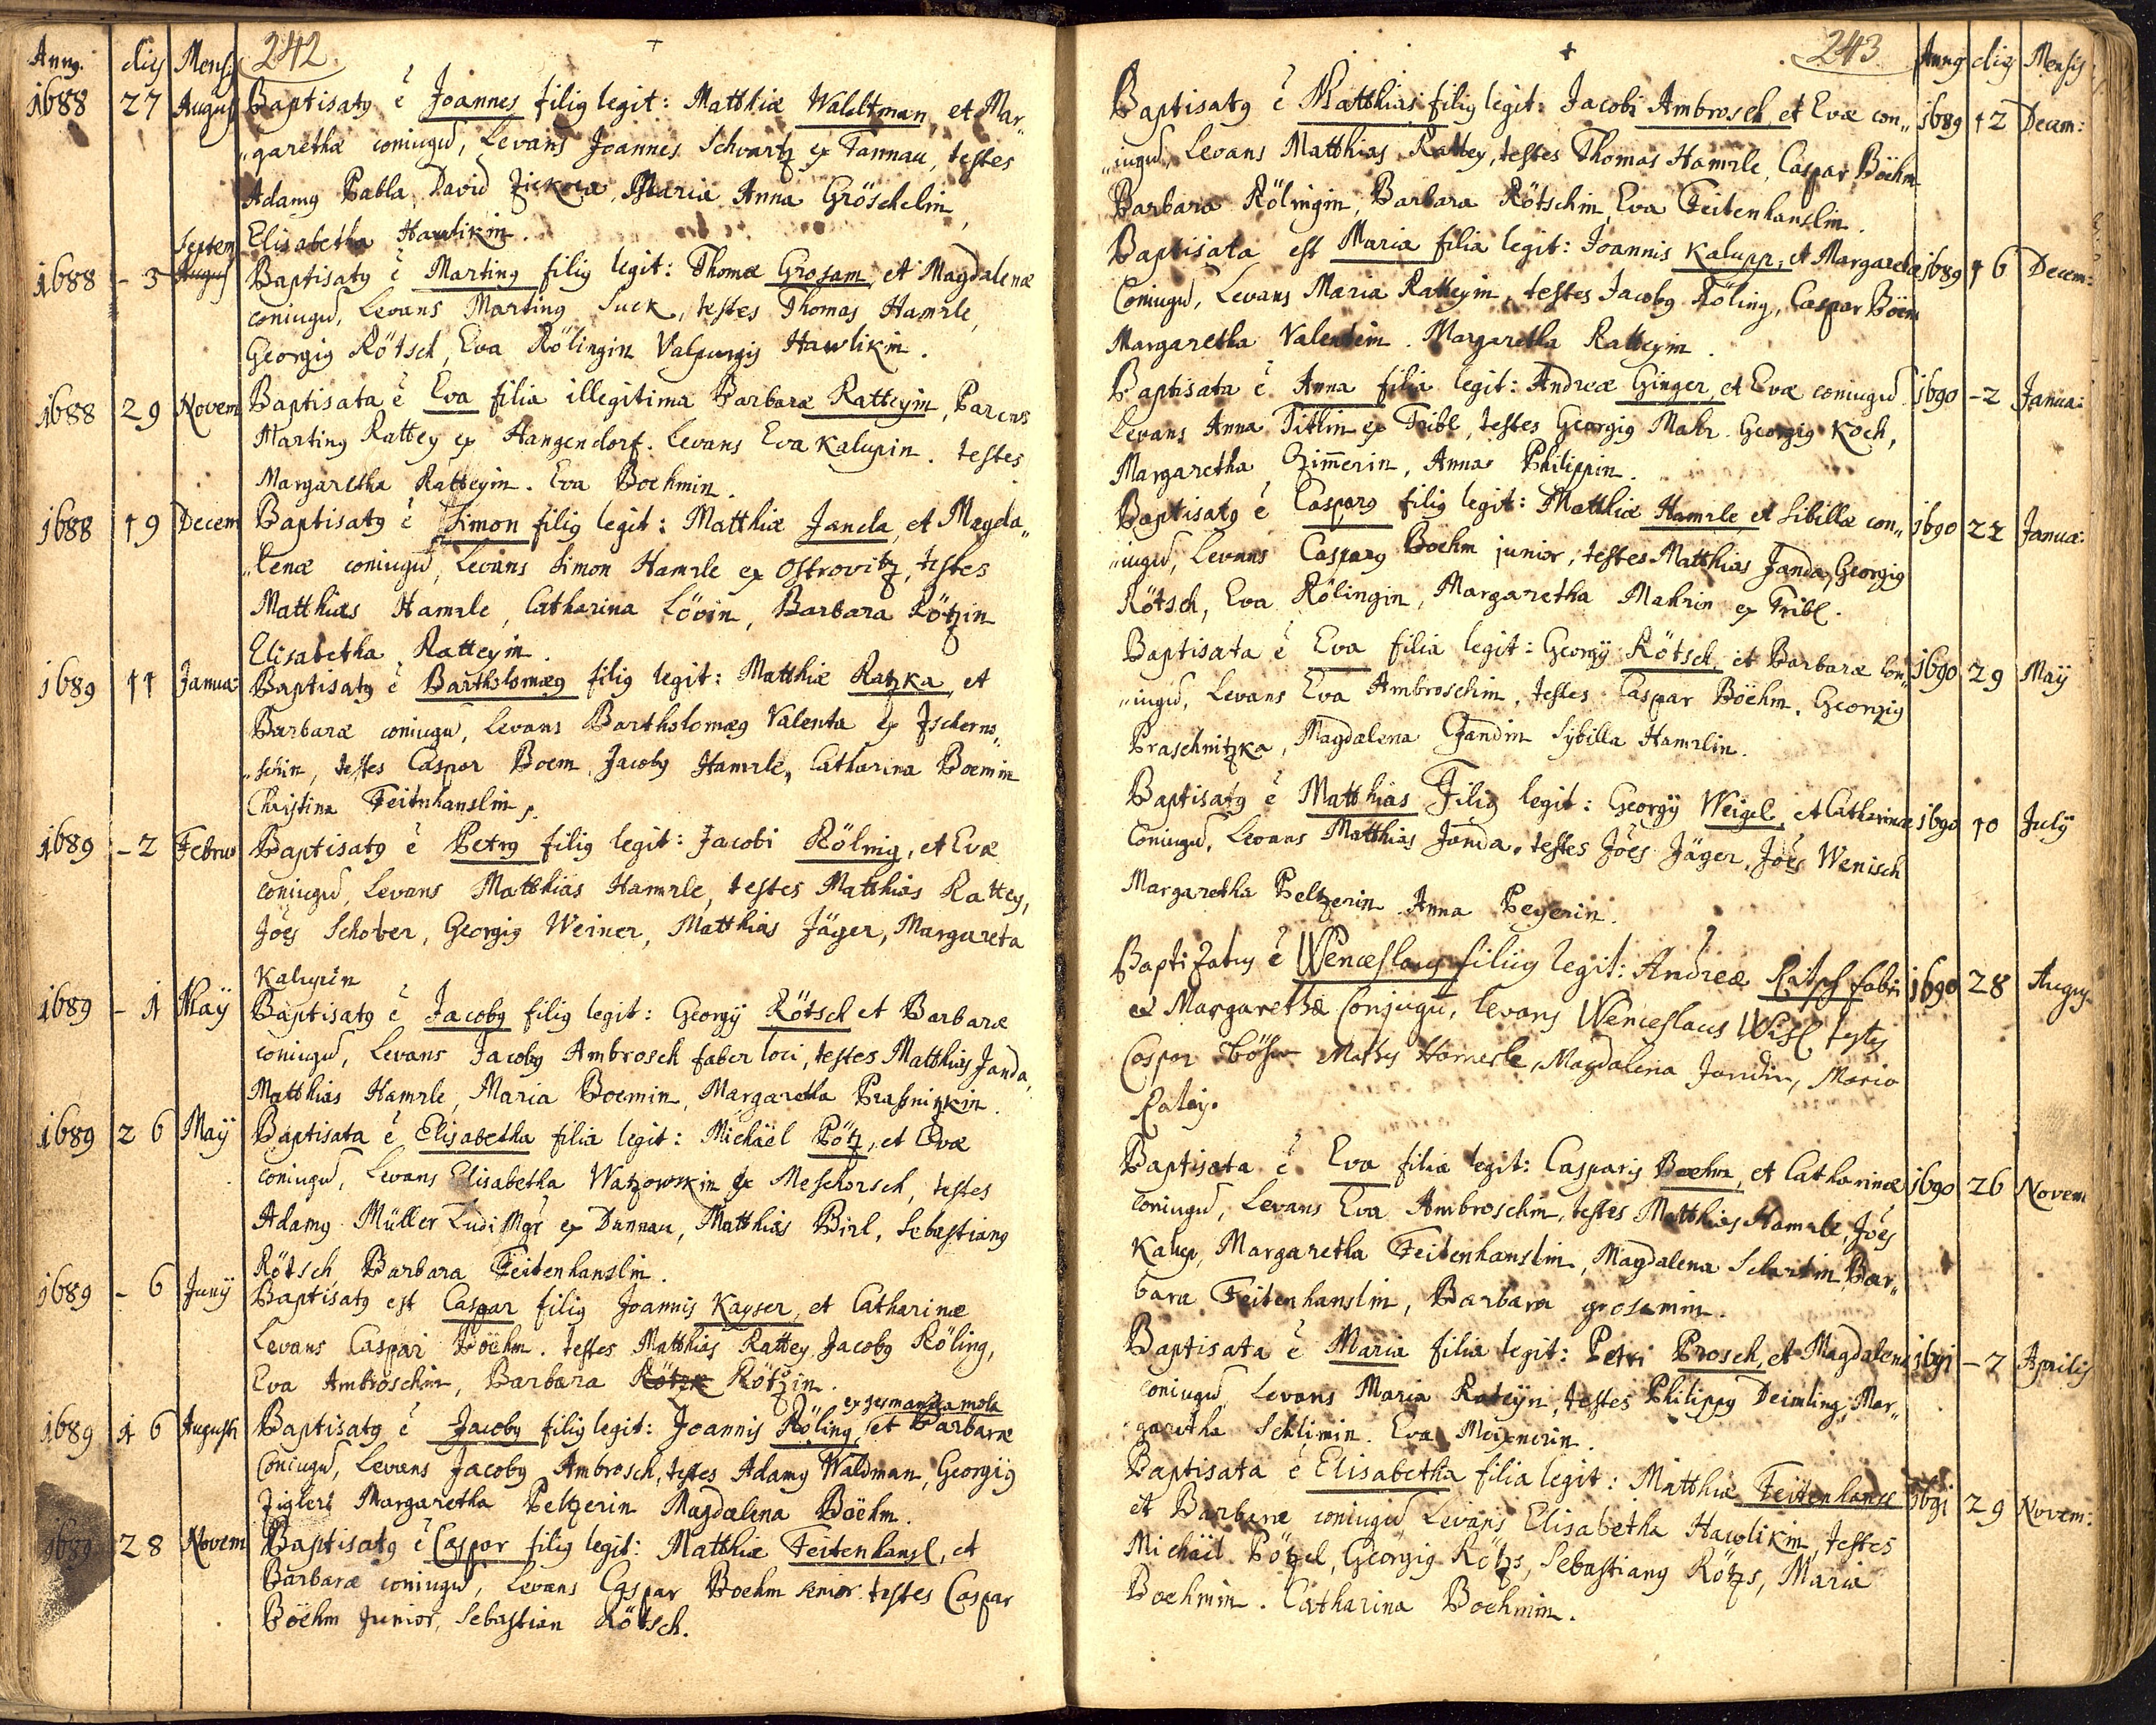 Anng. dig Mensg 242
1688 27 Augus Baptisatg ē Joannes filig legit: Matthiæ Waldtman, et Mar„
„garethæ coniugū, Levans Joannes Schvartz ex Tannau, testes
Adamg Babla, David Zickora, Maria Anna Gröschelin,
Elisabetha Hawlikin.
Septem
1688 - 3 Augus Baptisatg ē Marting filig legit: Thomæ Grosam, et Magdalenæ
coniugū, Levans Marting Suck, testes Thomas Hamrle,
Georgig Rötsch, Eva Rölingin Valpurgis Hawlikin.
1688 29 Novem Baptisata ē Eva filia illegitima Barbaræ Ratteyin, Parens
Marting Rattey ex Hangendorf. Levans Eva Kalupin. testes
Margaretha Ratteyin. Eva Boehmin.
1688 19 Decem Baptisatg ē Simon filig legit: Matthiæ Janda, et Magda„
„lenæ coniugū, Levans Simon Hamrle ex Ostrovitz, testes
Matthias Hamrle, Catharina Lövin, Barbara Rötzin
Elisabetha Ratteyin.
1689 11 Janua Baptisatg ē Bartholomæg filig legit: Matthiæ Ratzka, et
Barbaræ coniugū, Levans Bartholomæg Valenta ex Tscherno„
„schin, testes Caspar Boem, Jacobg Hamrle, Catharina Boemin
Christina Feitnhanslin.
1689 - 2 Februa Baptisatg ē Petrg filig legit: Jacobi Rölnig, et Evæ
coniugū, Levans Matthias Hamrle, testes Matthias Rattey,
Jōes Schober, Georgig Weiner, Matthias Jäger, Margareta
Kalupin
1689 - 1 Maÿ Baptisatg ē Jacobg filig legit: Georgÿ Rötsch et Barbaræ
coniugū, Levans Jacobg Ambrosch faber loci, testes Matthias Janda,
Matthias Hamrle, Maria Boemin, Margaretha Praßnizkin.
1689 26 Maÿ Baptisata ē Elisabetha filia legit: Michäel Pötz, et Evæ
coniugū, Levans Elisabetha Watzowskin ex Meschorsch, testes
Adamg Müller Ludi Mgr ex Dannau, Matthias Birl, Sebastiang
Rötsch, Barbara Feitenhanslin.
1689 - 6 Junÿ Baptisatg est Caspar filig Joannis Kayser, et Catharinæ
Levans Caspar Boehm. testes Matthias Rattey, Jacobg Röling,
Eva Ambroschin, Barbara Rötzk Rötzin.
ex germanda mola
1689 16 Augusti Baptisatg ē Jacobg filig legit: Joannis Röling, et Barbaræ
Coniugū, Levans Jacobg Ambrosch, testes Adamg Waldman, Georgig
Zigleri Margaretha Peltzerin Magdalena Boehm.
1689 28 Novem Baptisatg ē Caspar filig legit: Matthiæ Feitenhansl, et
Barbaræ coniugū, Levans Caspar Boehm senior testes Caspar
Böehm Junior, Sebastian Rötsch.
243 Anng dig Mensis
Baptisatg ē Matthias filig legit: Jacobi Ambrosch, et Evæ con„ 1689 12 Decem:
„iugū, Levans Matthias Rattey, testes Thomas Hamrle, Caspar Böehm
Barbara Rölingin, Barbara Rötschin, Eva Feitenhanslin.
Baptisata est Maria filia legit: Joannis Kalupp, et Margarethæ 1689 16 Decem:
Coniugū, Levans Maria Ratteyin, testes Jacobg Röling, Caspar Böem
Margaretha Valentin. Margaretha Ratteyin.
Baptisata ē Anna filia legit: Andreæ Ginger, et Evæ coniugū 1690 - 2 Janua:
Levans Anna Titlin ex Tribl, testes Georgig Mahr. Georgig Koch,
Margaretha Zimerin, Anna Philippin.
Baptisatg ē Casparg filig legit: Matthiæ Hamrle, et Sibillæ con„ 1690 22 Janua:
„iugū, Levans Casparg Boehm junior, testes Matthias Janda, Georgig
Rötsch, Eva Rölingin, Margaretha Mahrin ex Tribl.
Baptisata ē Eva filia legit: Georgÿ Rötsch et Barbaræ con„ 1690 29 Maÿ
„iugū, Levans Eva Ambroschin, testes Caspar Böehm, Georgig
Praschnitzka, Magdalena Gandin Sybilla Hamrlin.
Baptisatg ē Matthias Filig legit: Georgÿ Weigel, et Catharinæ 1690 10 Julÿ
Coniugū, Levans Matthias Janda, testes Jōes Jäger, Jōes Wenisch
Margaretha Peltzerin Anna Peyerin.
Baptizatus ē Wenceslaus filiig legit: Andreæ Ritsch fabri 1690 28 Augus
et Margarethæ Conjugū, levans Wenceslaus Wisl testis
Caspar Böhm Mathes Hamerle, Magdalena Jandin, Maria
Ratey.
Baptisata ē Eva filia legit: Casparis Boehm, et Catharinæ 1690 26 Novem
coniugū, Levans Eva Ambroschin, testes Matthias Hamrle, Jōes
Kalup, Margaretha Feitenhanslin, Magdalena Schartin, Bar„
bara Feitenhanslin, Barbara grosamin.
Baptisata ē Maria filia legit: Petri Prosch, et Magdalenæ 1691 - 7 Aprilis
coniugū Levans Maria Rateÿn, testes Philippg Deimling, Mar„
garetha Schlimin. Eva Meixnerin.
Baptisata ē Elisabetha filia legit: Matthiæ Feitenhansl 1691 29 Novem:
et Barbaræ coniugū Levans Elisabetha Hawlikin, testes
Michäel Pötzel, Georgig Rötzs, Sebastiang Rötzs, Maria
Boehmin. Catharina Boehmin.